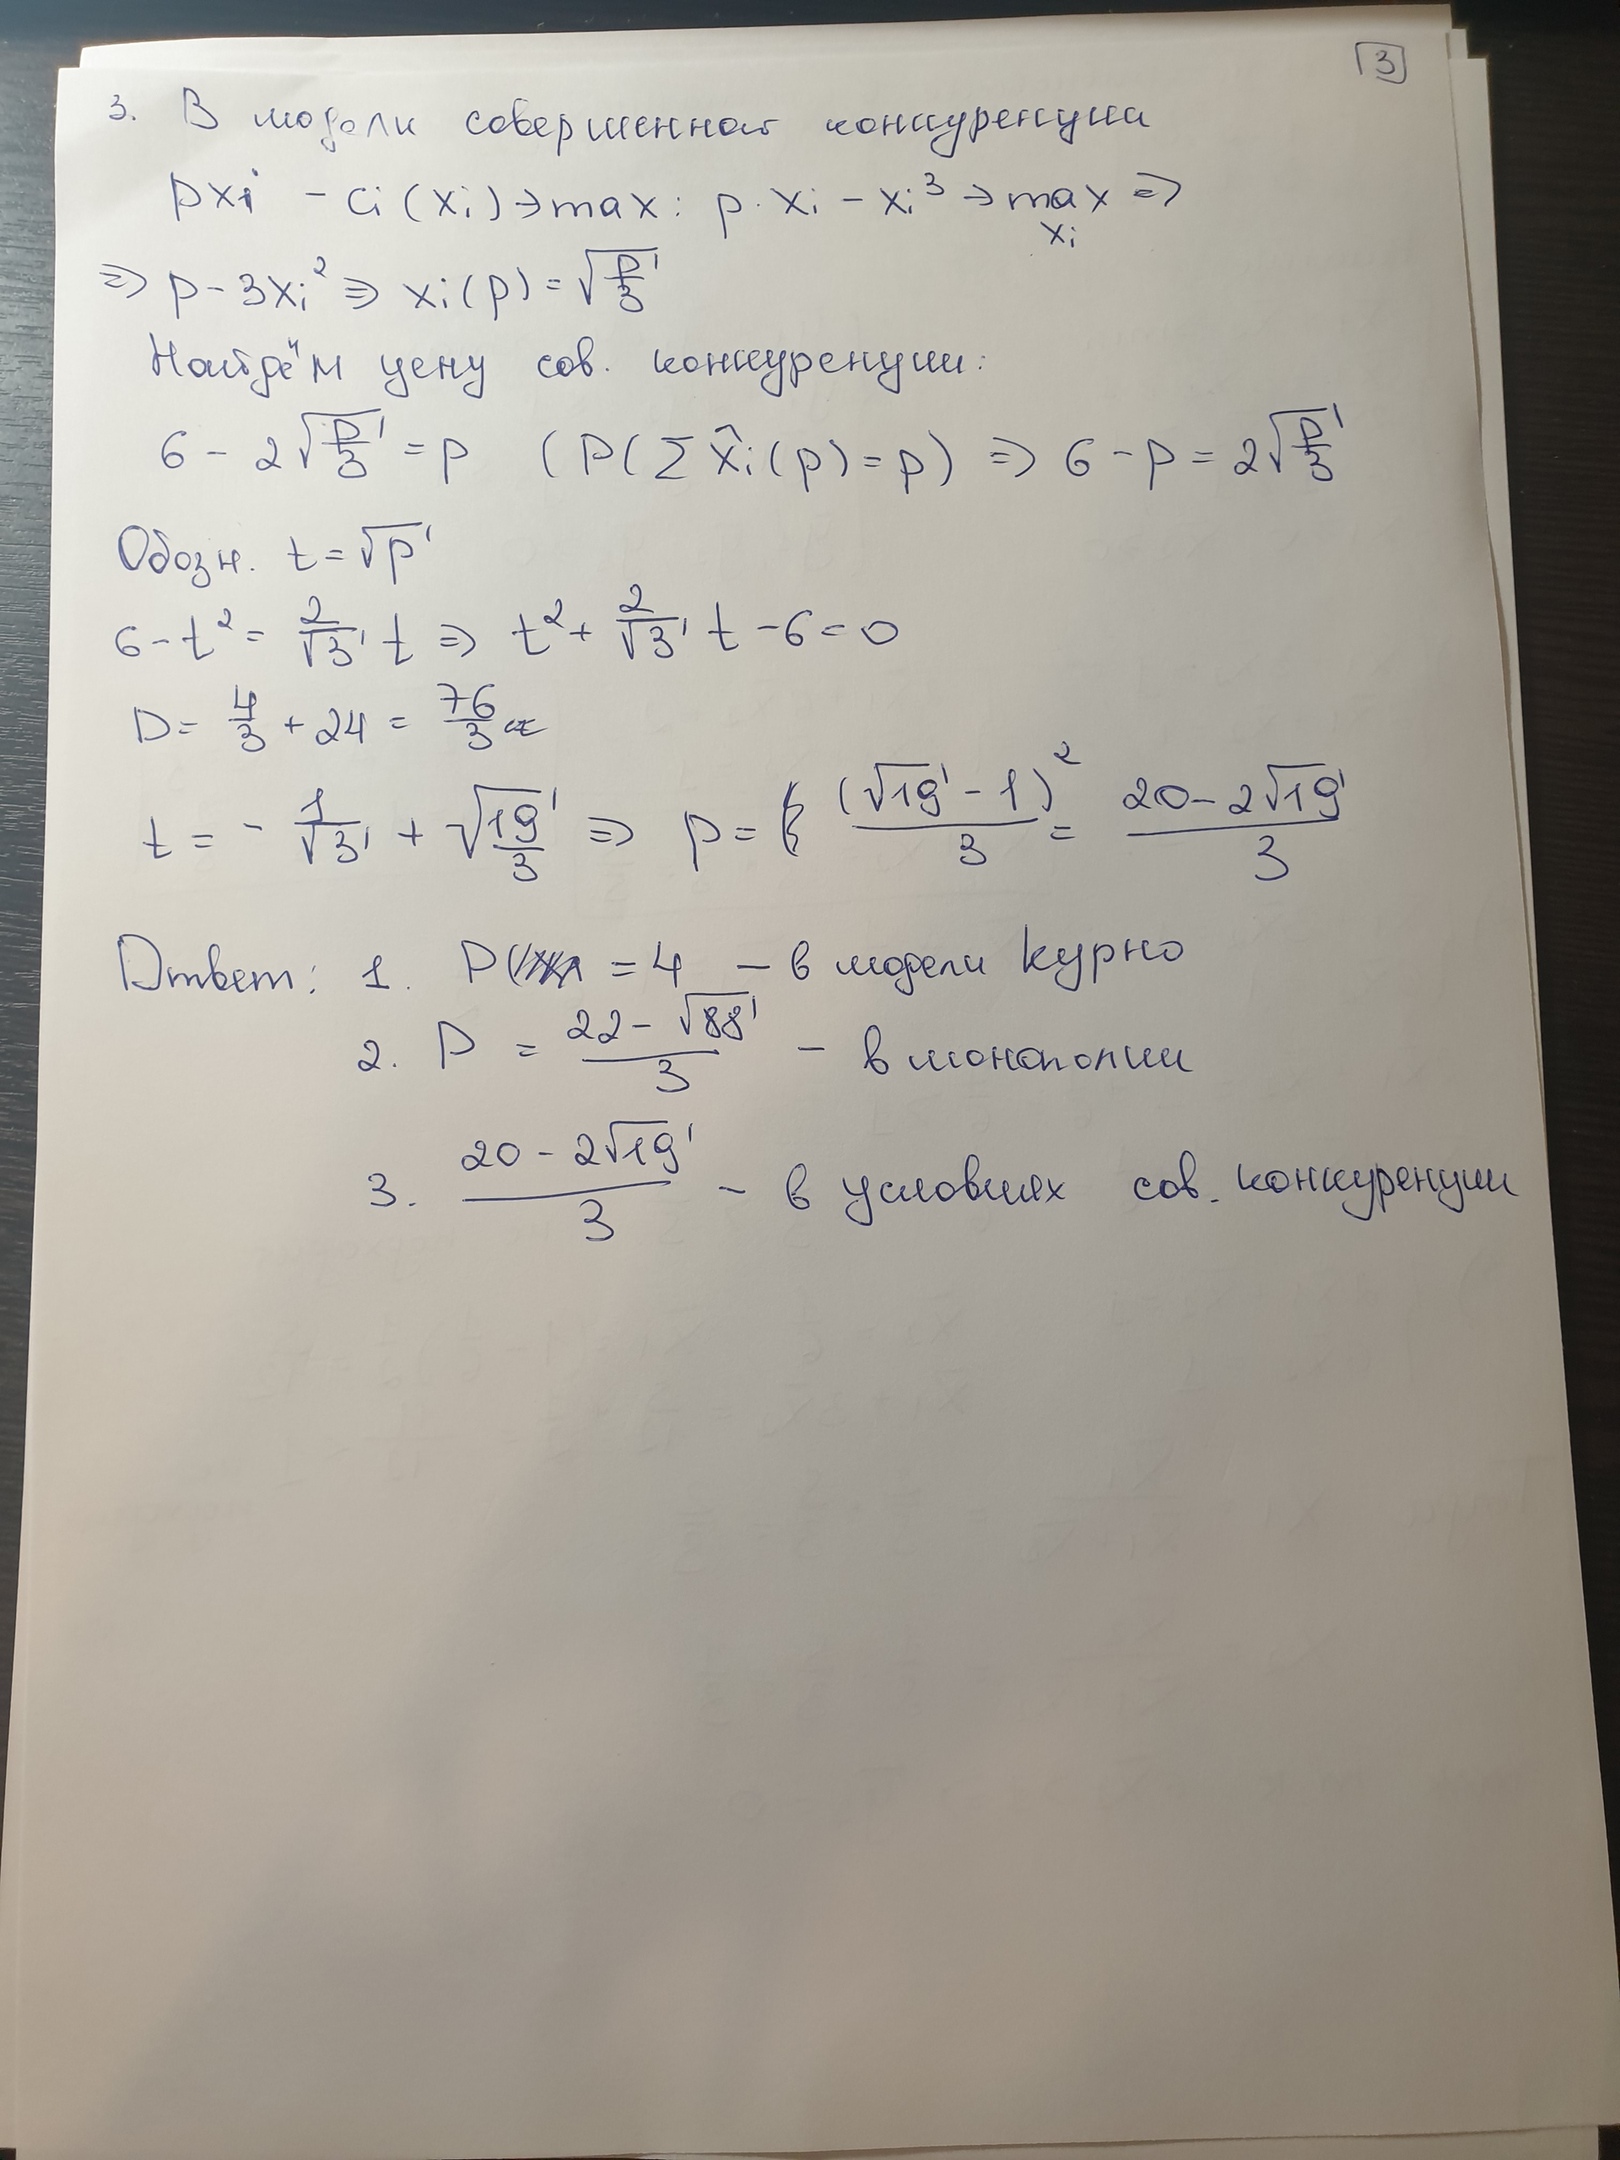 3
3. В модели совершенной конкуренции
pxi - ci(xi) → max: p·xi - xi³ → max ⇒
xi
⇒ p - 3xi² ⇒ xi(p) = √(p/3)
Найдём цену сов. конкуренции:
6 - 2√(p/3) = p (P(Σx̂i(p) = p) ⇒ 6 - p = 2√(p/3)
Обозн. t = √p
6 - t² = 2/√3 t ⇒ t² + 2/√3 t - 6 = 0
D = 4/3 + 24 = 76/3
t = - 1/√3 + √(19/3) ⇒ p = (√19 - 1)²/3 = (20 - 2√19)/3
Ответ: 1. P = 4 – в модели Курно
2. P = (22 - √88)/3 – в монополии
3. (20 - 2√19)/3 – в условиях сов. конкуренции